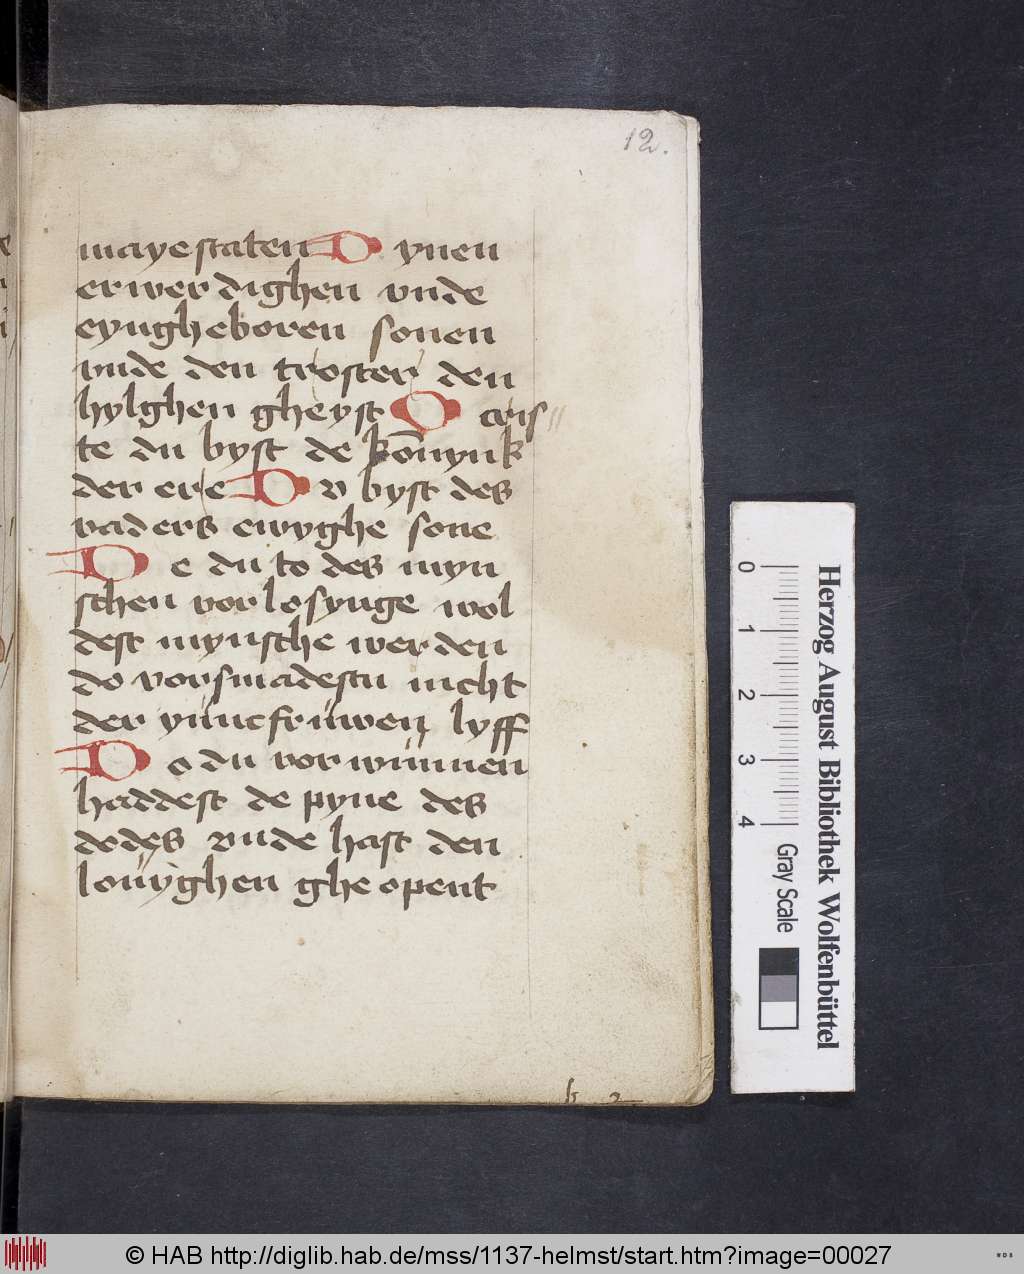 12.
mayestaten Dynen
erwerdighen vnde
eyngheboren sonen
vnde den troster den
hylghen gheyst O cris
te du byst de kōnynk
der ere Dv byst des
vaders ewyghe sone
De du to des myn
schen vorlosynge wol
dest mynsche werden
do vorsmadestu nicht
der yūncfrūwen lyff
Do du vorwūnnen
haddest de pyne des
dodes vnde hast den
loūyghen gheopent
b 2
Herzog August Bibliothek Wolfenbüttel
0 1 2 3 4 Gray Scale
© HAB http://diglib.hab.de/mss/1137-helmst/start.htm?image=00027